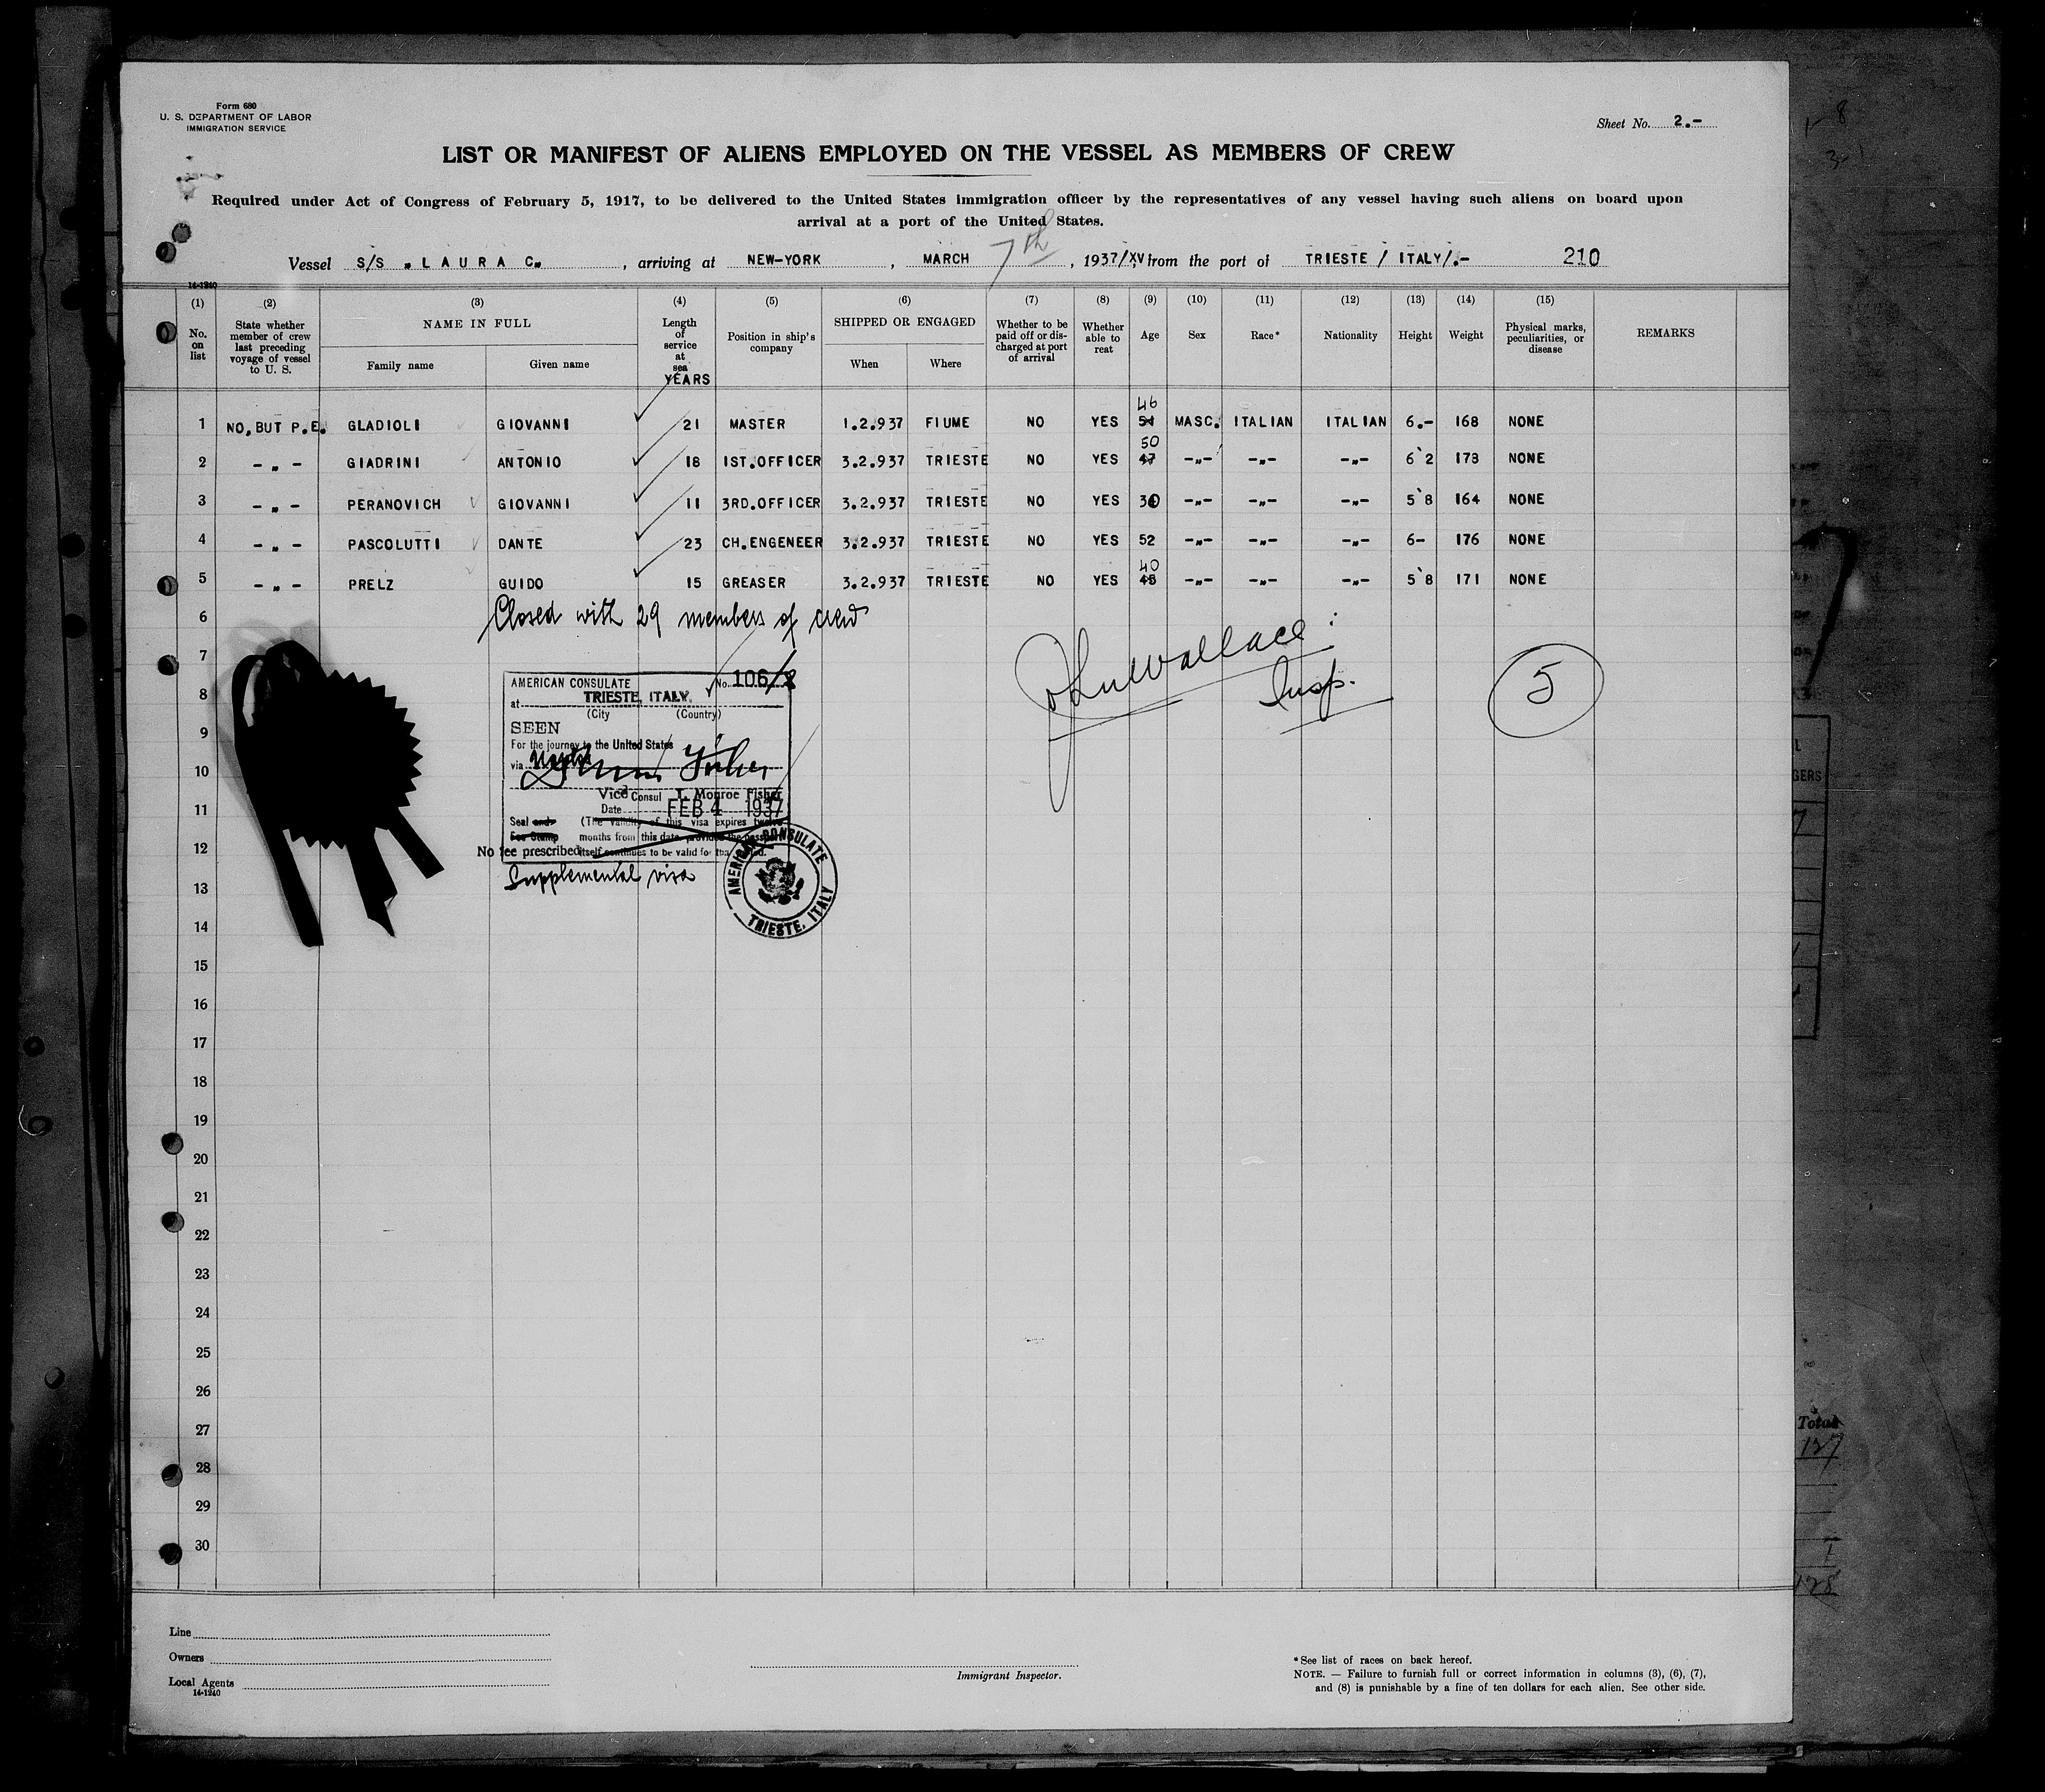 Form 680
U. S. DEPARTMENT OF LABOR
IMMIGRATION SERVICE
Sheet No. 2.-
LIST OR MANIFEST OF ALIENS EMPLOYED ON THE VESSEL AS MEMBERS OF CREW
Required under Act of Congress of February 5, 1917, to be delivered to the United States immigration officer by the representatives of any vessel having such aliens on board upon
arrival at a port of the United States.
Vessel S/S „LAURA C„ , arriving at NEW-YORK , MARCH 7th , 1937/XV, from the port of TRIESTE / ITALY/.- 210
14-1240
(1) (2) (3) (4) (5) (6) (7) (8) (9) (10) (11) (12) (13) (14) (15)
No. on list
State whether member of crew last preceding voyage of vessel to U. S.
NAME IN FULL
Family name
Given name
Length of service at sea
YEARS
Position in ship's company
SHIPPED OR ENGAGED
When
Where
Whether to be paid off or discharged at port of arrival
Whether able to reat
Age
Sex
Race*
Nationality
Height
Weight
Physical marks, peculiarities, or disease
REMARKS
46
1 NO, BUT P.E. GLADIOLI GIOVANNI 21 MASTER 1.2.937 FIUME NO YES 51 MASC. ITALIAN ITALIAN 6.- 168 NONE
50
2 -„- GIADRINI ANTONIO 18 IST.OFFICER 3.2.937 TRIESTE NO YES 47 -„- -„- -„- 6`2 173 NONE
3 -„- PERANOVICH GIOVANNI 11 3RD.OFFICER 3.2.937 TRIESTE NO YES 30 -„- -„- -„- 5`8 164 NONE
4 -„- PASCOLUTTI DANTE 23 CH.ENGENEER 3.2.937 TRIESTE NO YES 52 -„- -„- -„- 6- 176 NONE
40
5 -„- PRELZ GUIDO 15 GREASER 3.2.937 TRIESTE NO YES 48 -„- -„- -„- 5`8 171 NONE
6 Closed with 29 members of crew
7
8
9
10
11
12
13
14
15
16
17
18
19
20
21
22
23
24
25
26
27
28
29
30
John Wallace
Insp.
5
AMERICAN CONSULATE No. 106/
at TRIESTE, ITALY.
(City (Country)
SEEN
For the journey to the United States
via
Vice Consul T. Monroe Fisher
Date FEB 4 1937
Seal and (The validity of this visa expires twelve
Fee Stamp months from this date, provided the passport
No fee prescribed itself continues to be valid for that period.
Supplemental visa
AMERICAN CONSULATE
TRIESTE, ITALY
Line
Owners
Local Agents
14-1240
Immigrant Inspector.
*See list of races on back hereof.
NOTE. — Failure to furnish full or correct information in columns (3), (6), (7),
and (8) is punishable by a fine of ten dollars for each alien. See other side.
Total
127
1
128